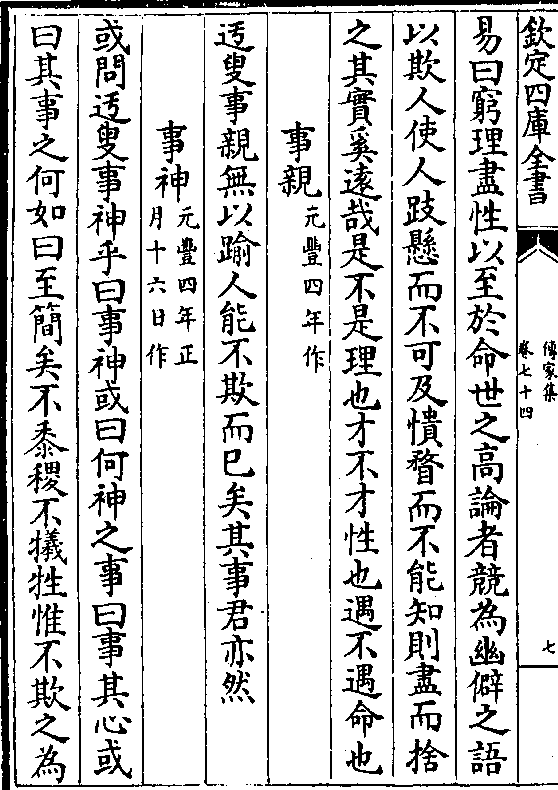 欽定四庫全書
傳家集
卷七十四
七
易曰窮理盡性以至於命世之高論者競為幽僻之語
以欺人使人跂懸而不可及憒瞀而不能知則盡而捨
之其實奚遠哉是不是理也才不才性也遇不遇命也
事親元豐四年作
迂叟事親無以踰人能不欺而已矣其事君亦然
事神元豐四年正
月十六日作
或問迂叟事神乎曰事神或曰何神之事曰事其心或
曰其事之何如曰至簡矣不黍稷不犧牲惟不欺之為